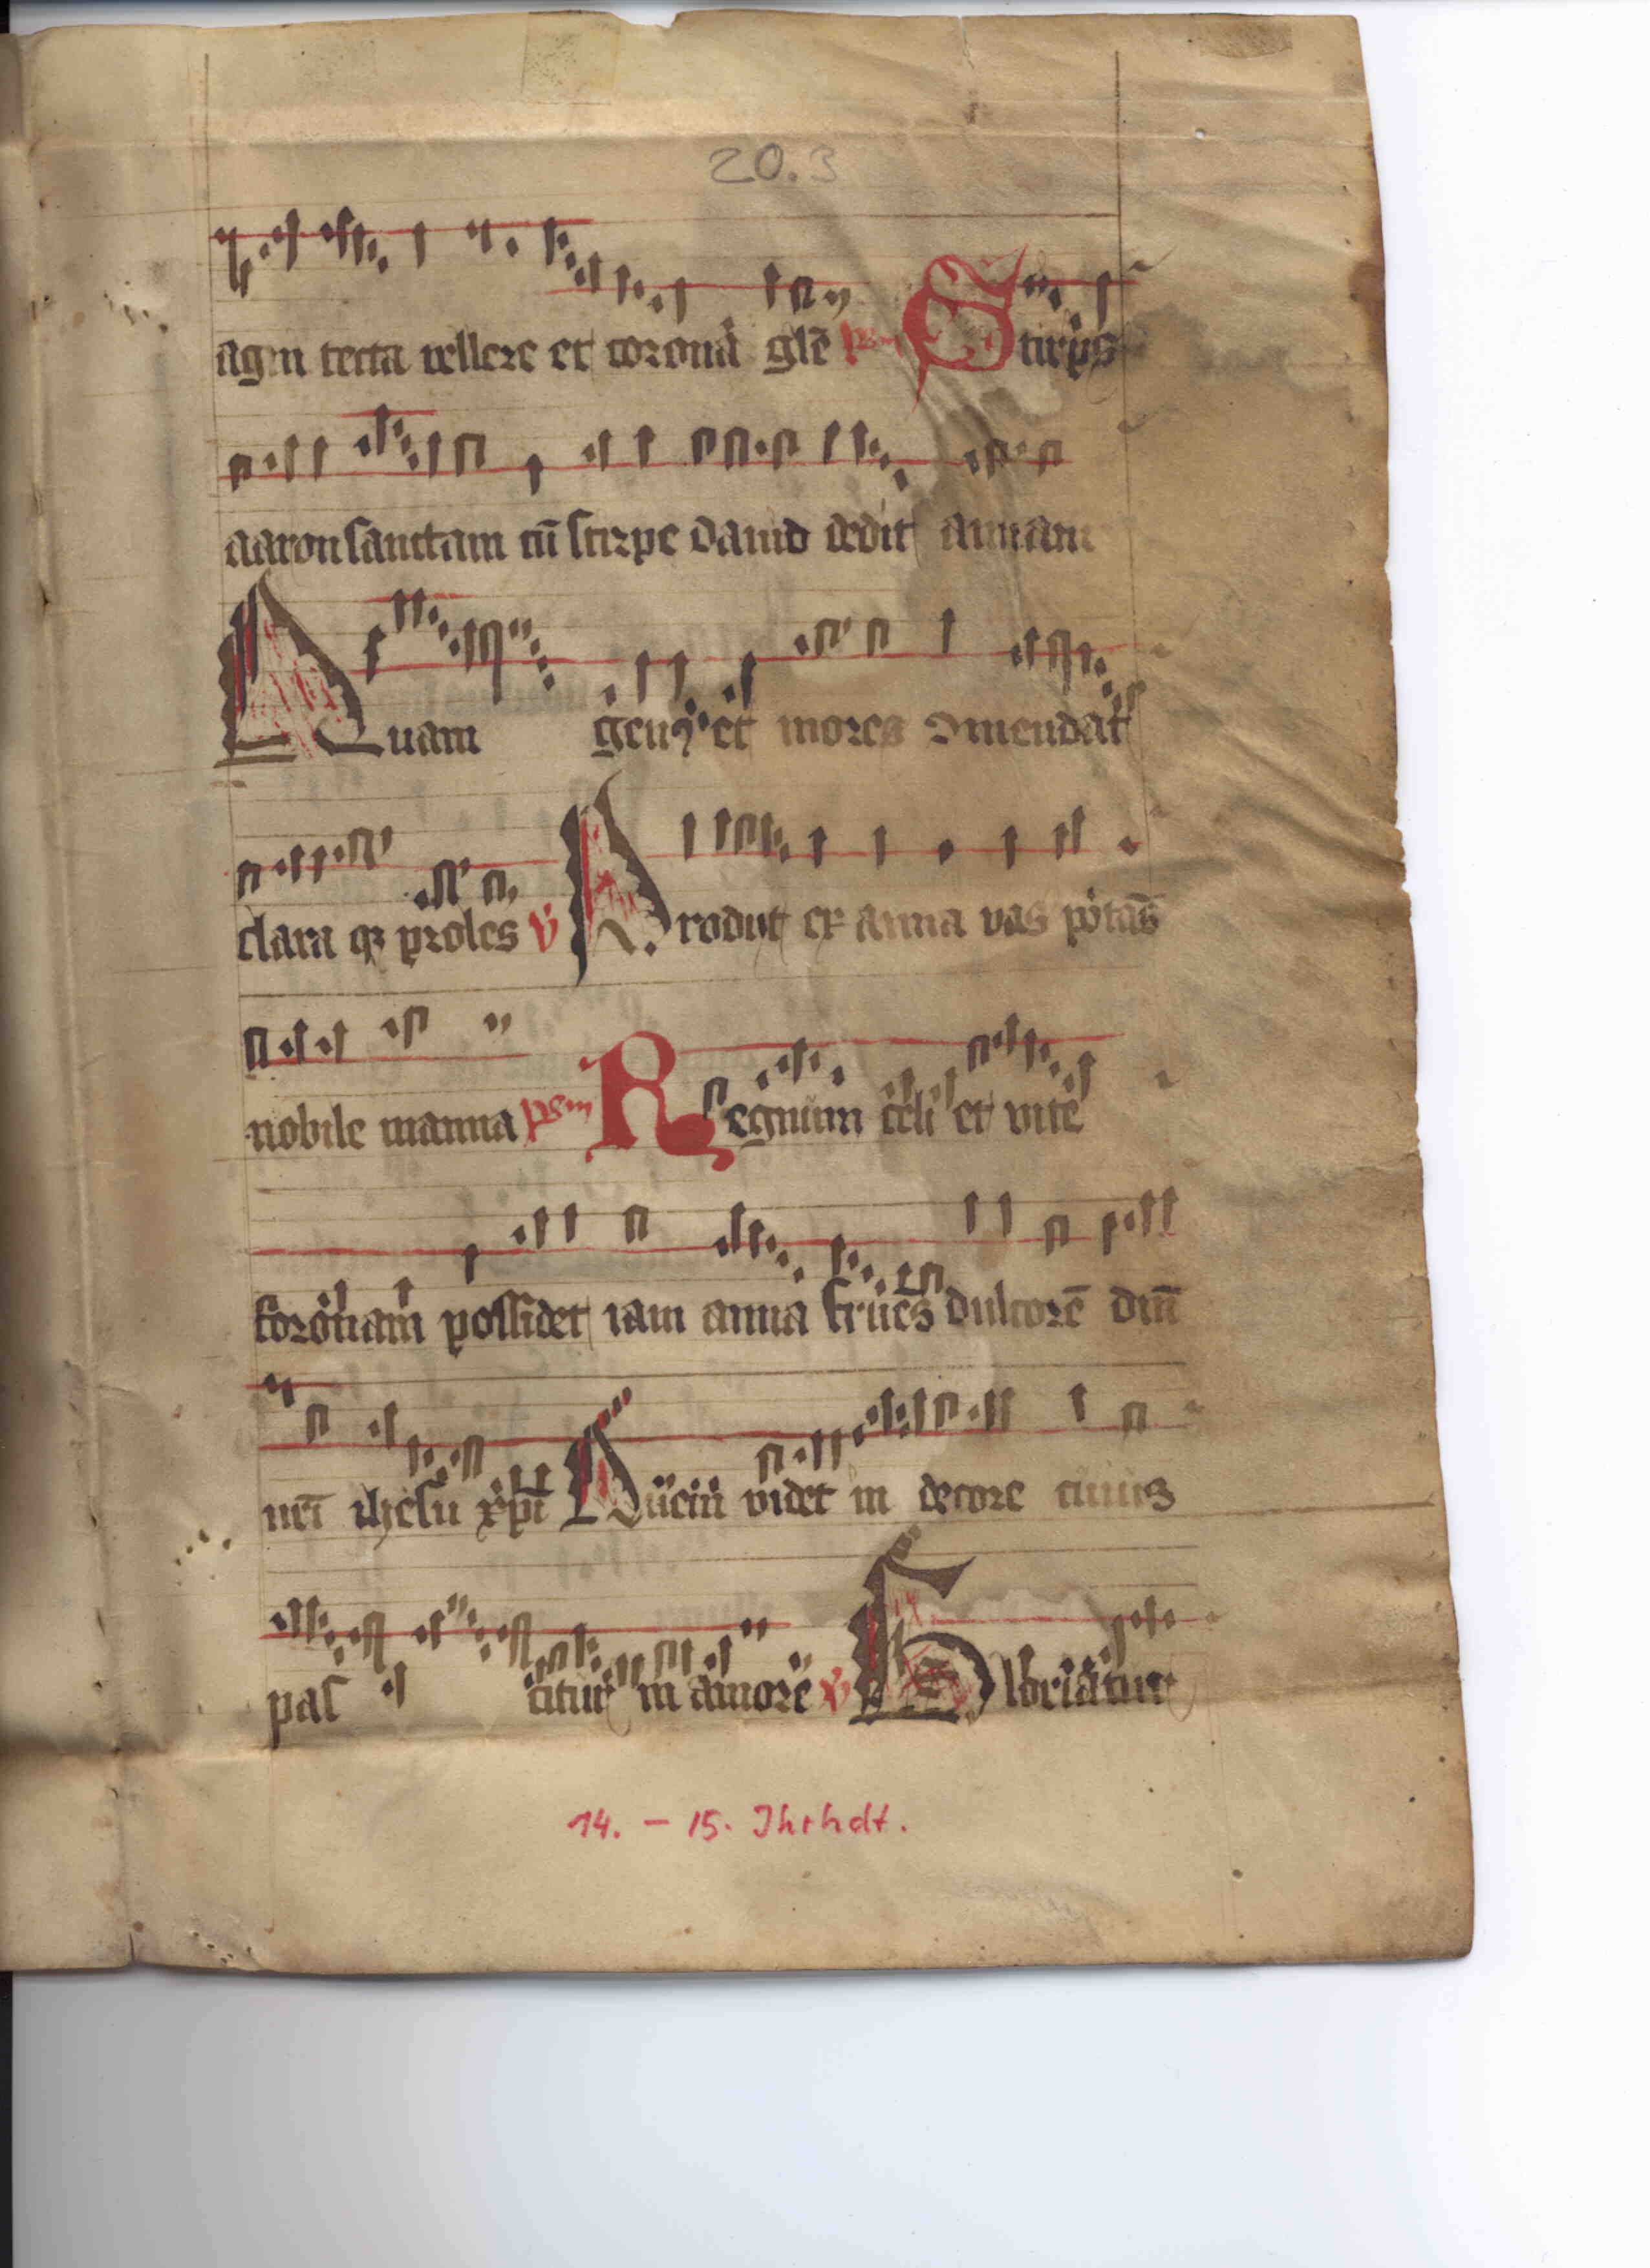 20.3
agni tecta vellere et coronā glē psm Stirps
aaron sanctam cū stirpe dauid dedit annam
Quam genꝰ et mores ꝯmendāt
clara qꝫ proles v̄ Prodijt ex anna vas portās
nobile manna psm Regnum celi et vite
coronam possidet iam anna frues dulcorē dnī
nrī ihesu xpī Quem videt in decore cuius
pascitur in amore v̄ Gloriatur
14. – 15. Jhrhdt.